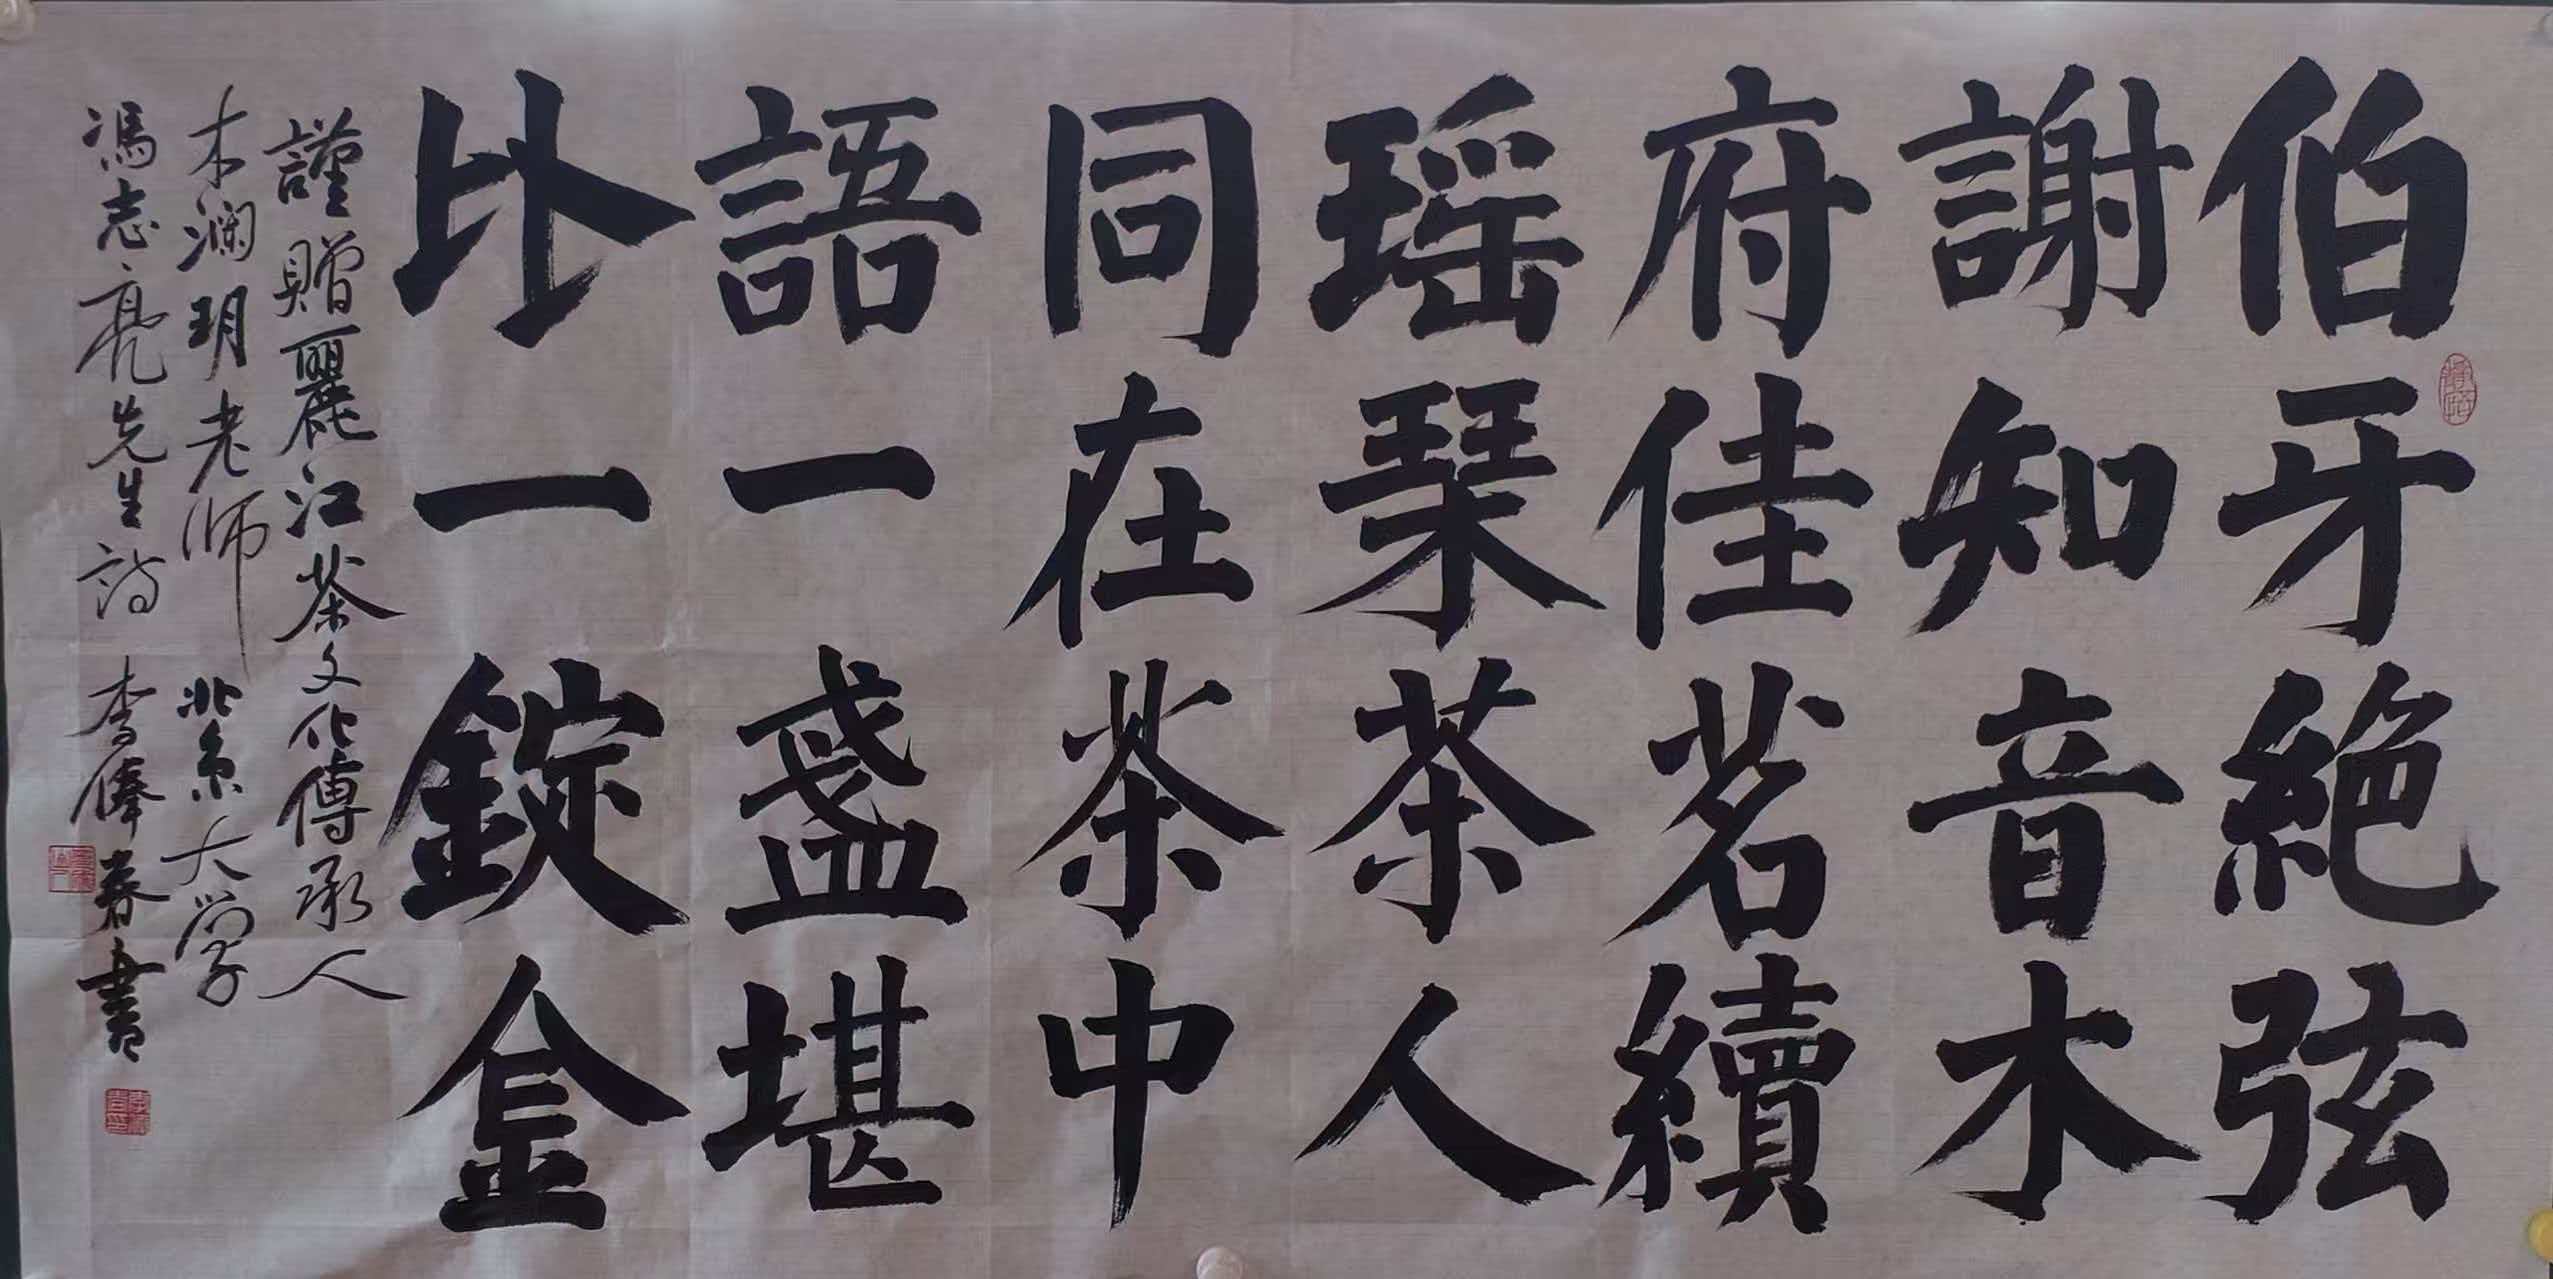 伯牙絶弦
謝知音木
府佳茗續
瑶琴茶人
同在茶中
語一盏堪
比一錠金
謹贈麗江茶文化傳承人
木瀾玥老师 北京大学
馮志亮先生詩 李俸春書